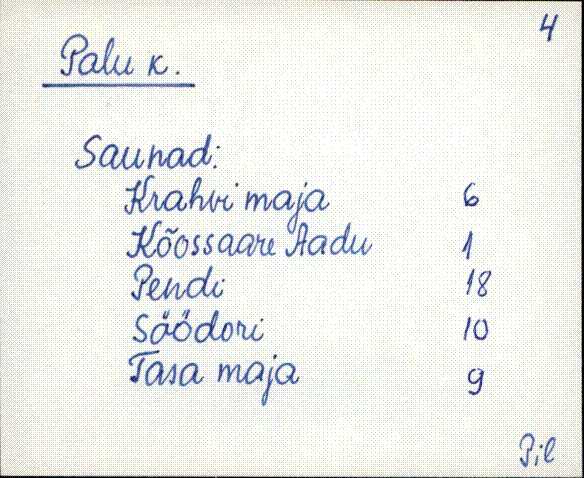 4
Palu k.
Saunad:
Krahvi maja 6
Kõossaare Aadu 1
Pendi 18
Söödori 10
Tasa maja 9
Pil